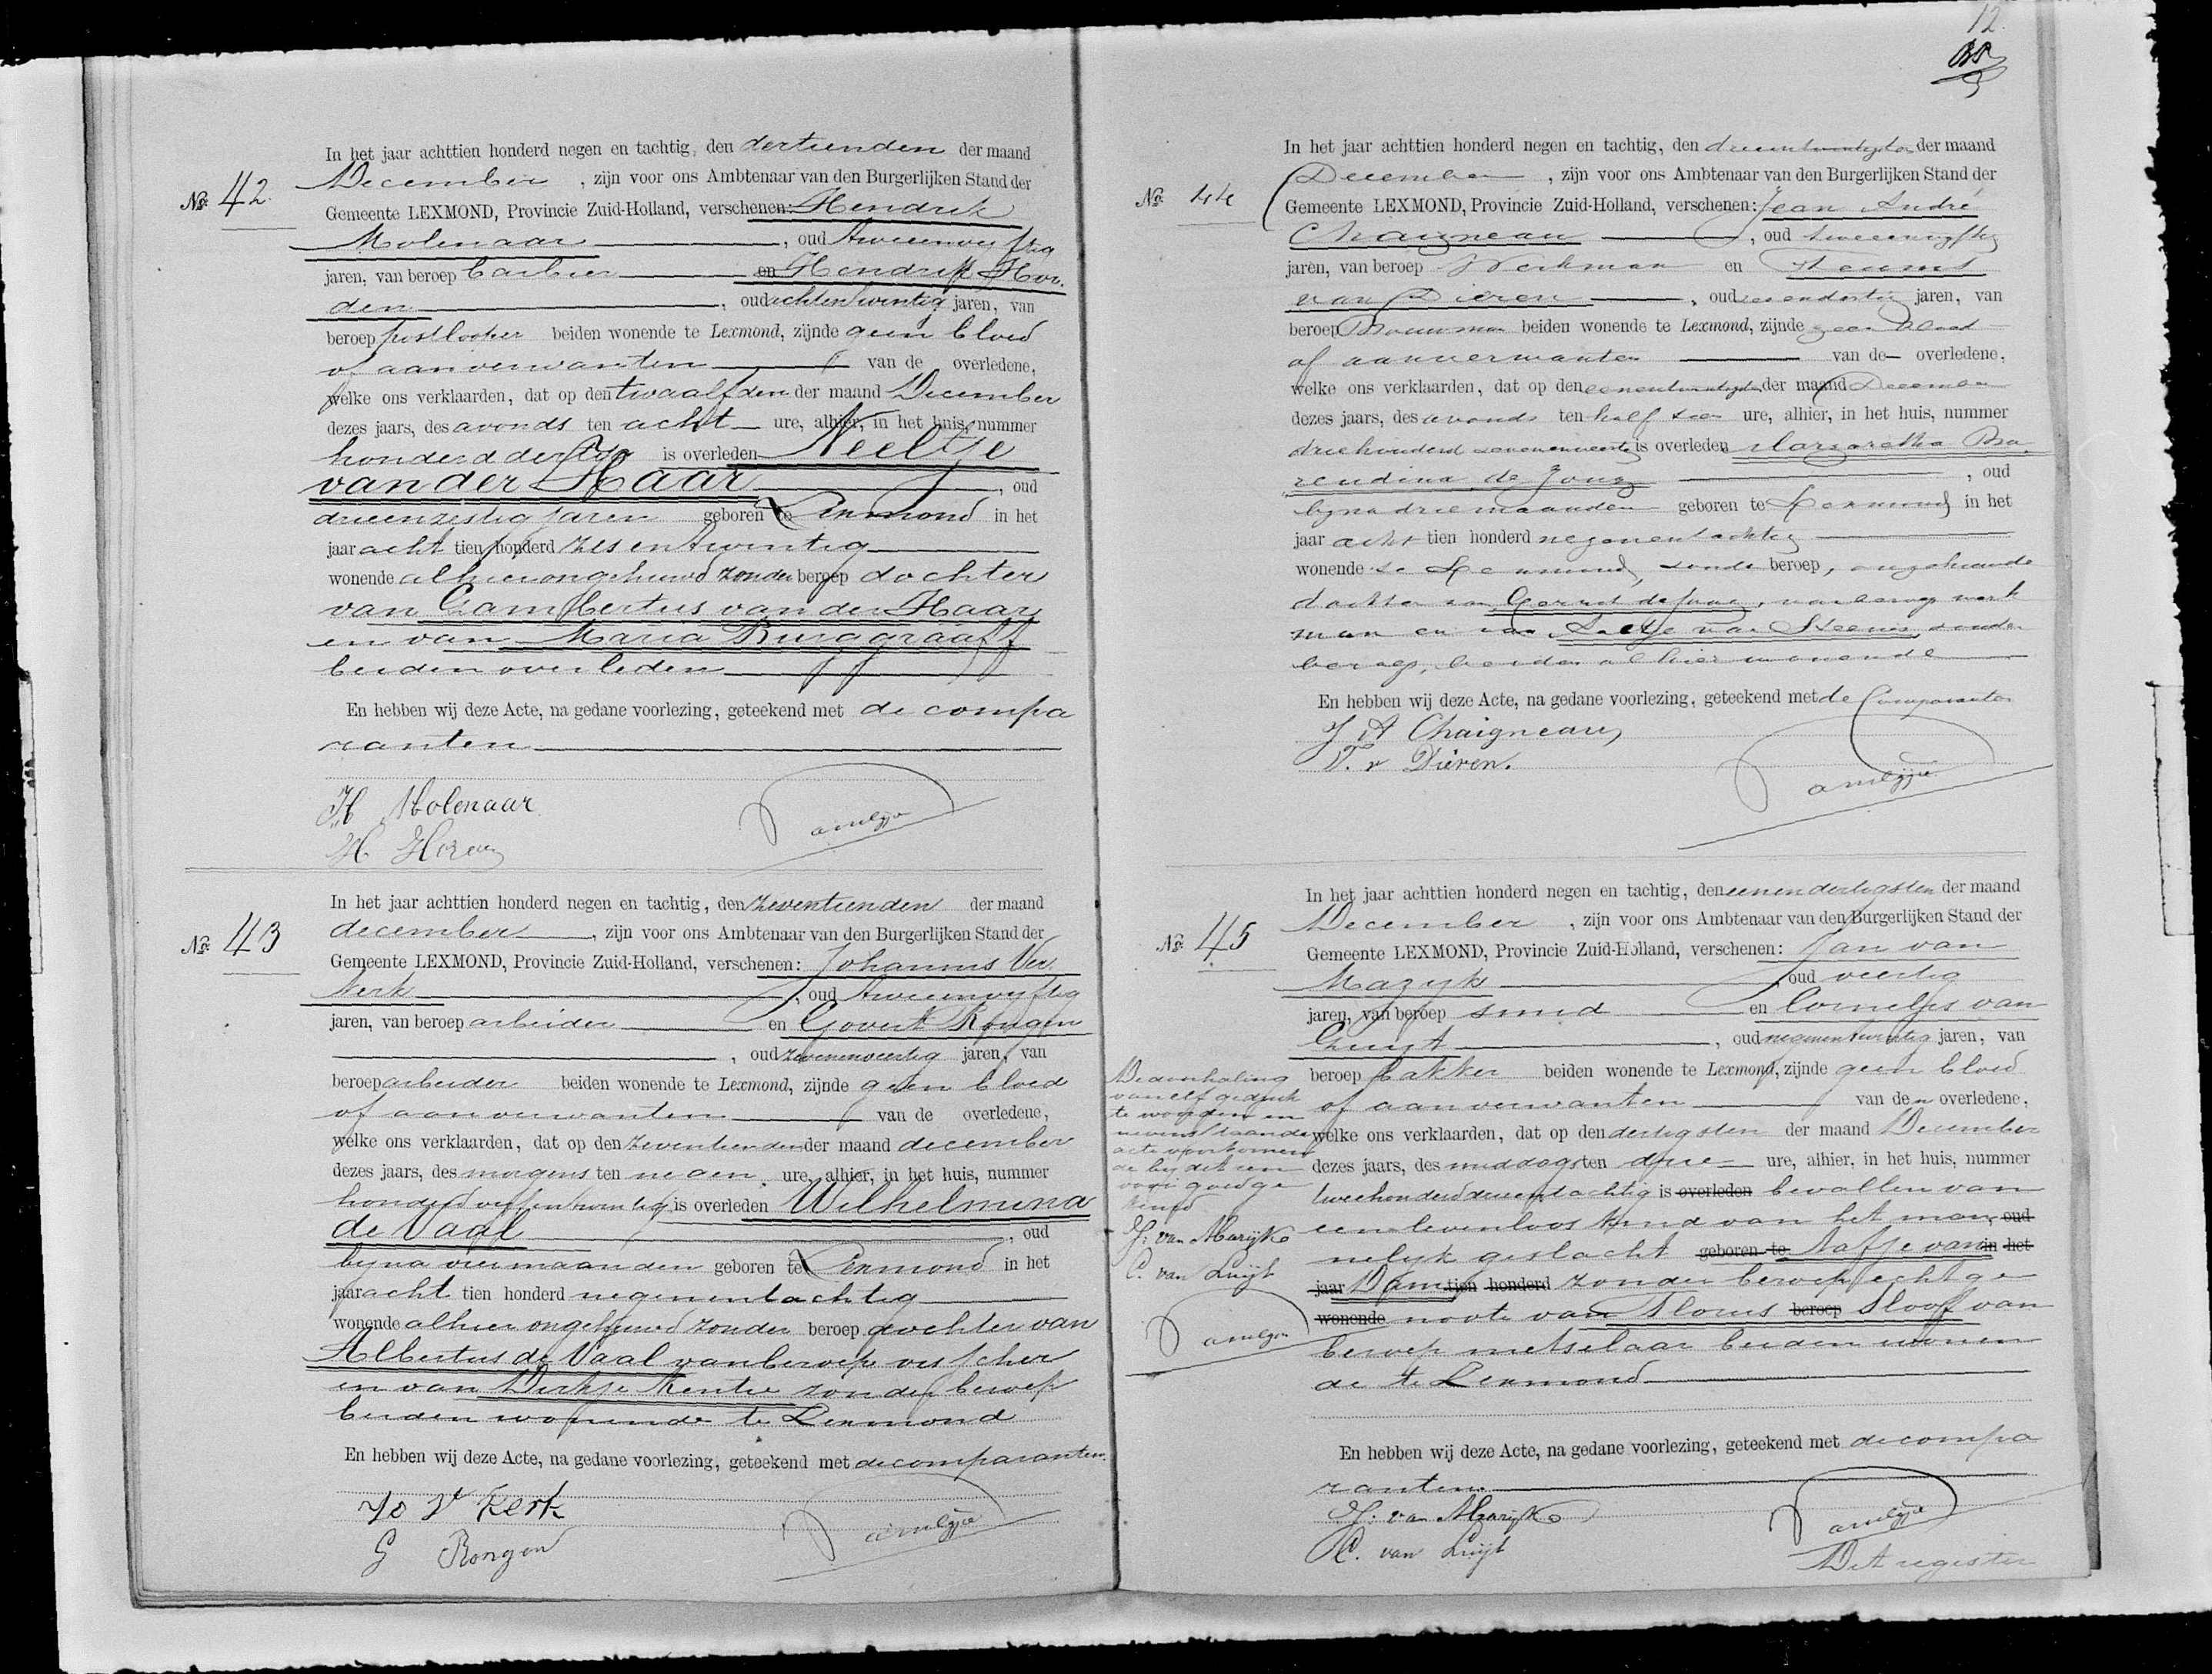 12.
In het jaar achttien honderd negen en tachtig, den dertienden der maand
No. 42
December, zijn voor ons Ambtenaar van den Burgerlijken Stand der
Gemeente LEXMOND, Provincie Zuid-Holland, verschenen: Hendrik
Molenaar, oud tweeenvyftig
jaren, van beroep barbier en Hendrik Hor
den, oud achtentwintig jaren, van
beroep postlooper beiden wonende te Lexmond, zijnde geen bloed
of aanverwanten van de overledene,
welke ons verklaarden, dat op den twaalfden der maand December
dezes jaars, des avonds ten acht ure, alhier, in het huis, nummer
honderd dertig is overleden Neeltje
van der Haar, oud
drieenzestig jaren geboren te Lexmond in het
jaar acht tien honderd zes en twintig
wonende alhier ongehuwd zonder beroep dochter
van Lambertus van der Haar
en van Maria Burggraaff
beiden overleden
En hebben wij deze Acte, na gedane voorlezing, geteekend met de compa
ranten
H Molenaar
H
In het jaar achttien honderd negen en tachtig, den zeventienden der maand
No. 43
december, zijn voor ons Ambtenaar van den Burgerlijken Stand der
Gemeente LEXMOND, Provincie Zuid-Holland, verschenen: Johannis Ver
kerk, oud tweeenvyftig
jaren, van beroep arbeider en Govert Rongen
, oud zevenenveertig jaren, van
beroep arbeider beiden wonende te Lexmond, zijnde geen bloed
of aanverwanten van de overledene,
welke ons verklaarden, dat op den zeventienden der maand december
dezes jaars, des morgens ten negen ure, alhier, in het huis, nummer
honderd vyfentwintig is overleden Wilhelmina
de Vaal, oud
byna vier maanden geboren te Lexmond in het
jaar acht tien honderd negenentachtig
wonende alhier ongehuwd zonder beroep dochter van
Albertus de Vaal van beroep visscher
en van Dirkje Kentie zonder beroep
beiden wonende te Lexmond
En hebben wij deze Acte, na gedane voorlezing, geteekend met de comparanten.
Jo Vt Kerk
G Rongen
In het jaar achttien honderd negen en tachtig, den drieentwintigsten der maand
No. 44
December, zijn voor ons Ambtenaar van den Burgerlijken Stand der
Gemeente LEXMOND, Provincie Zuid-Holland, verschenen: Jean André
Chaigneau, oud tweeenvyftig
jaren, van beroep Werkman en Teunis
van Dieren, oud zevendertig jaren, van
beroep Bouwman beiden wonende te Lexmond, zijnde geen bloed
of aanverwanten van de overledene,
welke ons verklaarden, dat op den eenentwintigsten der maand December
dezes jaars, des avonds ten half tien ure, alhier, in het huis, nummer
driehonderd zevenenveertig is overleden Margaretha Ba
rendina de Jong, oud
byna drie maanden geboren te Lexmond in het
jaar acht tien honderd negenentachtig
wonende te Lexmond, zonder beroep, ongehuwde
dochter van Gerrit de Jong, van beroep werk
man en van Aaltje van Steenis, zonder
beroep, beiden alhier wonende
En hebben wij deze Acte, na gedane voorlezing, geteekend met de Comparanten
J A Chaigneau
T. v Dieren.
In het jaar achttien honderd negen en tachtig, den eenendertigsten der maand
No. 45
December, zijn voor ons Ambtenaar van den Burgerlijken Stand der
Gemeente LEXMOND, Provincie Zuid-Holland, verschenen: Jan van
Mazyk, oud veertig
jaren, van beroep smid en Cornelis van
Luijt, oud negenentwintig jaren, van
beroep bakker beiden wonende te Lexmond, zijnde geen bloed
of aanverwanten van den overledene,
welke ons verklaarden, dat op den dertigsten der maand December
dezes jaars, des middags ten drie ure, alhier, in het huis, nummer
tweehonderd drieentachtig is overleden bevallen van
een levenloos kind van het man oud
nelyk geslacht geboren te Aafje van in het
jaar Dam tien honderd zonder beroep echtge
wonende noote van Floris beroep Slooff van
beroep metselaar beiden wonen
de te Lexmond
De doorhaling
van elf gedrukte
te woorden in
nevenstaande
acte voorkomen
de bij deze
goedge
keurd
J: van Mazijk
C. van Luijt
En hebben wij deze Acte, na gedane voorlezing, geteekend met de compa
ranten.
J: van Mazijk
C. van Luijt
Dit register